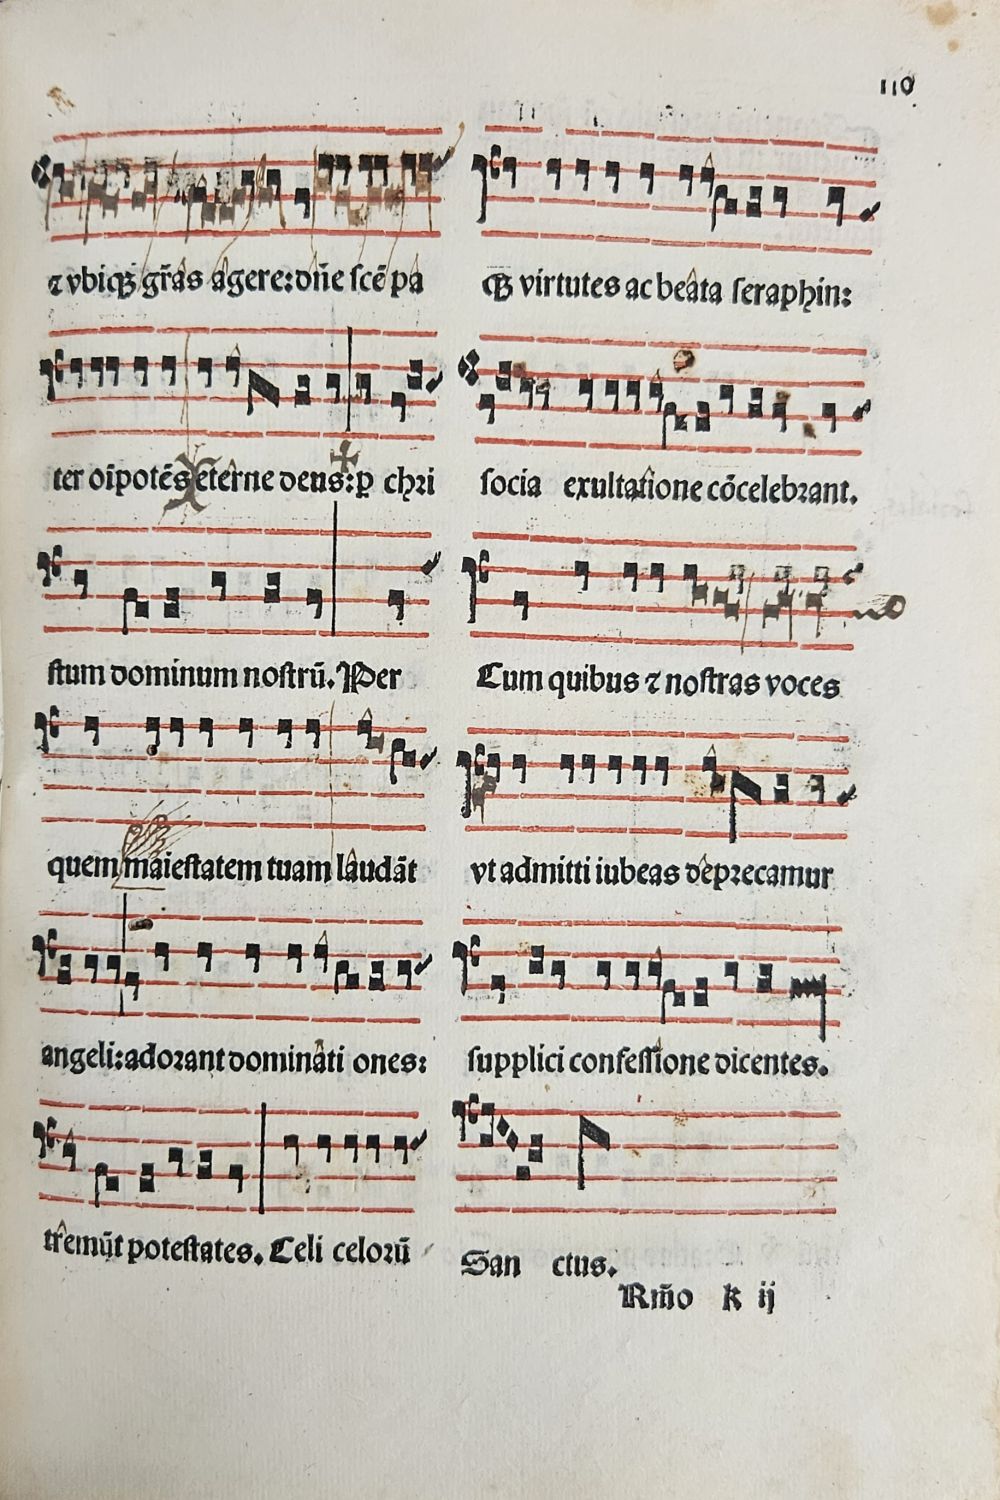 110
⁊ vbiqꝫ gr̃as agere: dñe scē pa
ter oīpotēs eterne deus: ꝑ chri
stum dominum nostrū. Per
quem maiestatem tuam laudāt
angeli: adoꝛant dominati ones:
tremūt potestates. Celi celoꝛū
qꝫ virtutes ac beata seraphin:
socia exultatione cōcelebꝛant.
Cum quibus ⁊ nostras voces
vt admitti iubeas depꝛecamur
supplici confessione dicentes.
San ctus.
Rm̃o k ij